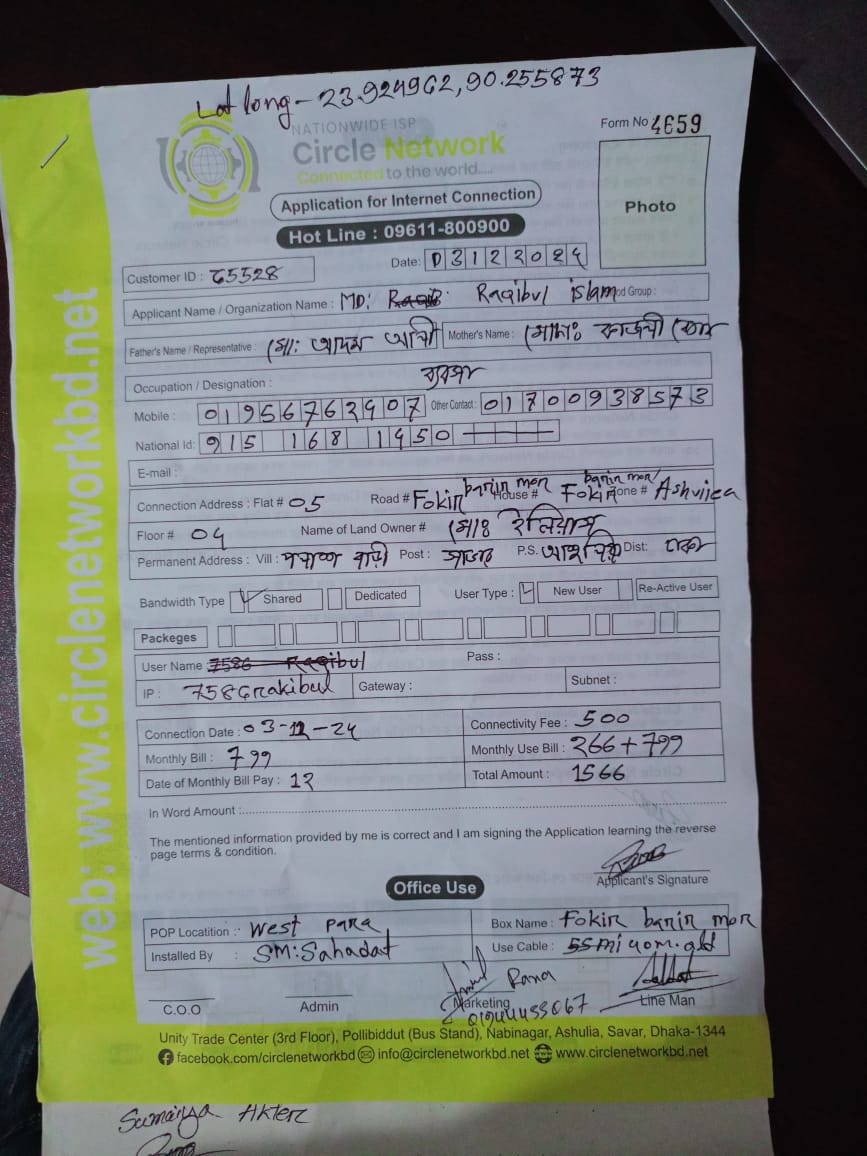 Lat long - 23.924962, 90.255873
NATIONWIDE ISP
Circle Network
Connected to the world....
Form No 4659
Application for Internet Connection
Photo
Hot Line : 09611-800900
Date: 03122024
Customer ID : 65528
Applicant Name / Organization Name : MD: Raqibul islam od Group :
Father's Name / Representative : মো: আদম আলী Mother's Name : মোসাঃ
Occupation / Designation : ব্যবসা
Mobile : 01956762407 Other Contact : 01700938573
National Id: 915 168 1450
E-mail :
Connection Address : Flat # 05 Road # Fokir barir mor House # Fokir barir mor one # Ashuliea
Floor # 04 Name of Land Owner # মোঃ ইলিয়াস
Permanent Address : Vill : পবনার বাড়ী Post : সাভার P.S. আশুলিয়া Dist: ঢাকা
Bandwidth Type Shared Dedicated User Type : New User Re-Active User
Packeges
User Name 7586 Raqibul Pass :
IP : 7586rakibul Gateway : Subnet :
Connection Date : 03-12-24 Connectivity Fee : 500
Monthly Bill : 799 Monthly Use Bill : 266+799
Date of Monthly Bill Pay : 12 Total Amount : 1566
In Word Amount :
The mentioned information provided by me is correct and I am signing the Application learning the reverse
page terms & condition.
Applicant's Signature
Office Use
POP Locatition : West Para Box Name : Fokir barir mor
Installed By : SM:Sahadat Use Cable :
Rana
C.O.O Admin Marketing Line Man
01944455067
Unity Trade Center (3rd Floor), Pollibiddut (Bus Stand), Nabinagar, Ashulia, Savar, Dhaka-1344
facebook.com/circlenetworkbd info@circlenetworkbd.net www.circlenetworkbd.net
web: www.circlenetworkbd.net
Sumaiya Akter